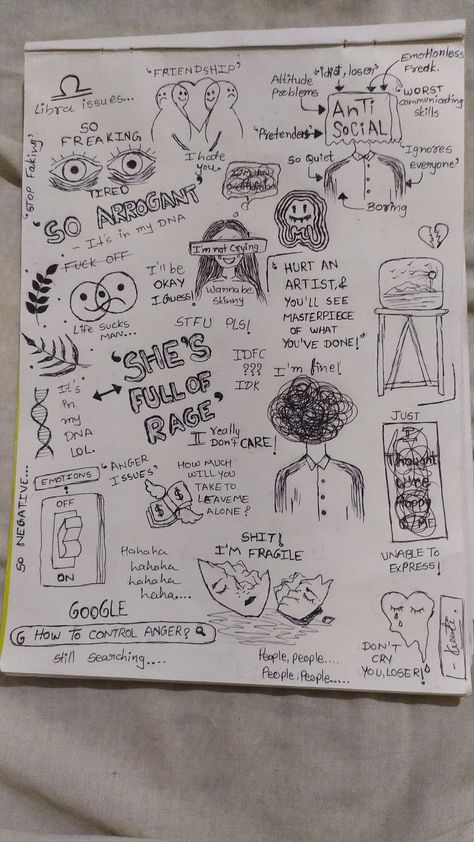 Libra issues...
'FRIENDSHIP'
Attitude
Problems
'idiot, loser'
Emotionless
Freak.
'WORST
communicating
skills
ANTi
SOCiAL
'Pretender'
'Ignores
everyone'
So Quiet
Boring
SO
FREAKING
TIRED
'STOP Faking'
I hate
you
'SO ARROGANT
- It's in my DNA
I'm not Crying
Wannabe
skinny
FUCK OFF
Life sucks
MAN...
I'll be
OKAY
I Guess!
STFU PLS!
"HURT AN
ARTIST, &
YOU'LL SEE
MASTERPIECE
OF WHAT
YOU'VE DONE!"
'SHE'S
FULL OF
RAGE'
IDFC
???
IDK
I'm fine!
It's
in
my
DNA
LOL.
I really
Don't CARE!
JUST
I
Thought
UNABLE TO
EXPRESS!
SO NEGATIVE...
EMOTIONS
OFF
ON
"ANGER
ISSUES"
$
$
HOW MUCH
WILL YOU
TAKE TO
LEAVE ME
ALONE?
Hahaha
hahaha
hahaha
haha....
SHIT!
I'M FRAGILE
GOOGLE
G HOW TO CONTROL ANGER?
still searching....
People, people....
People, People.....
DON'T
CRY
YOU, LOSER!